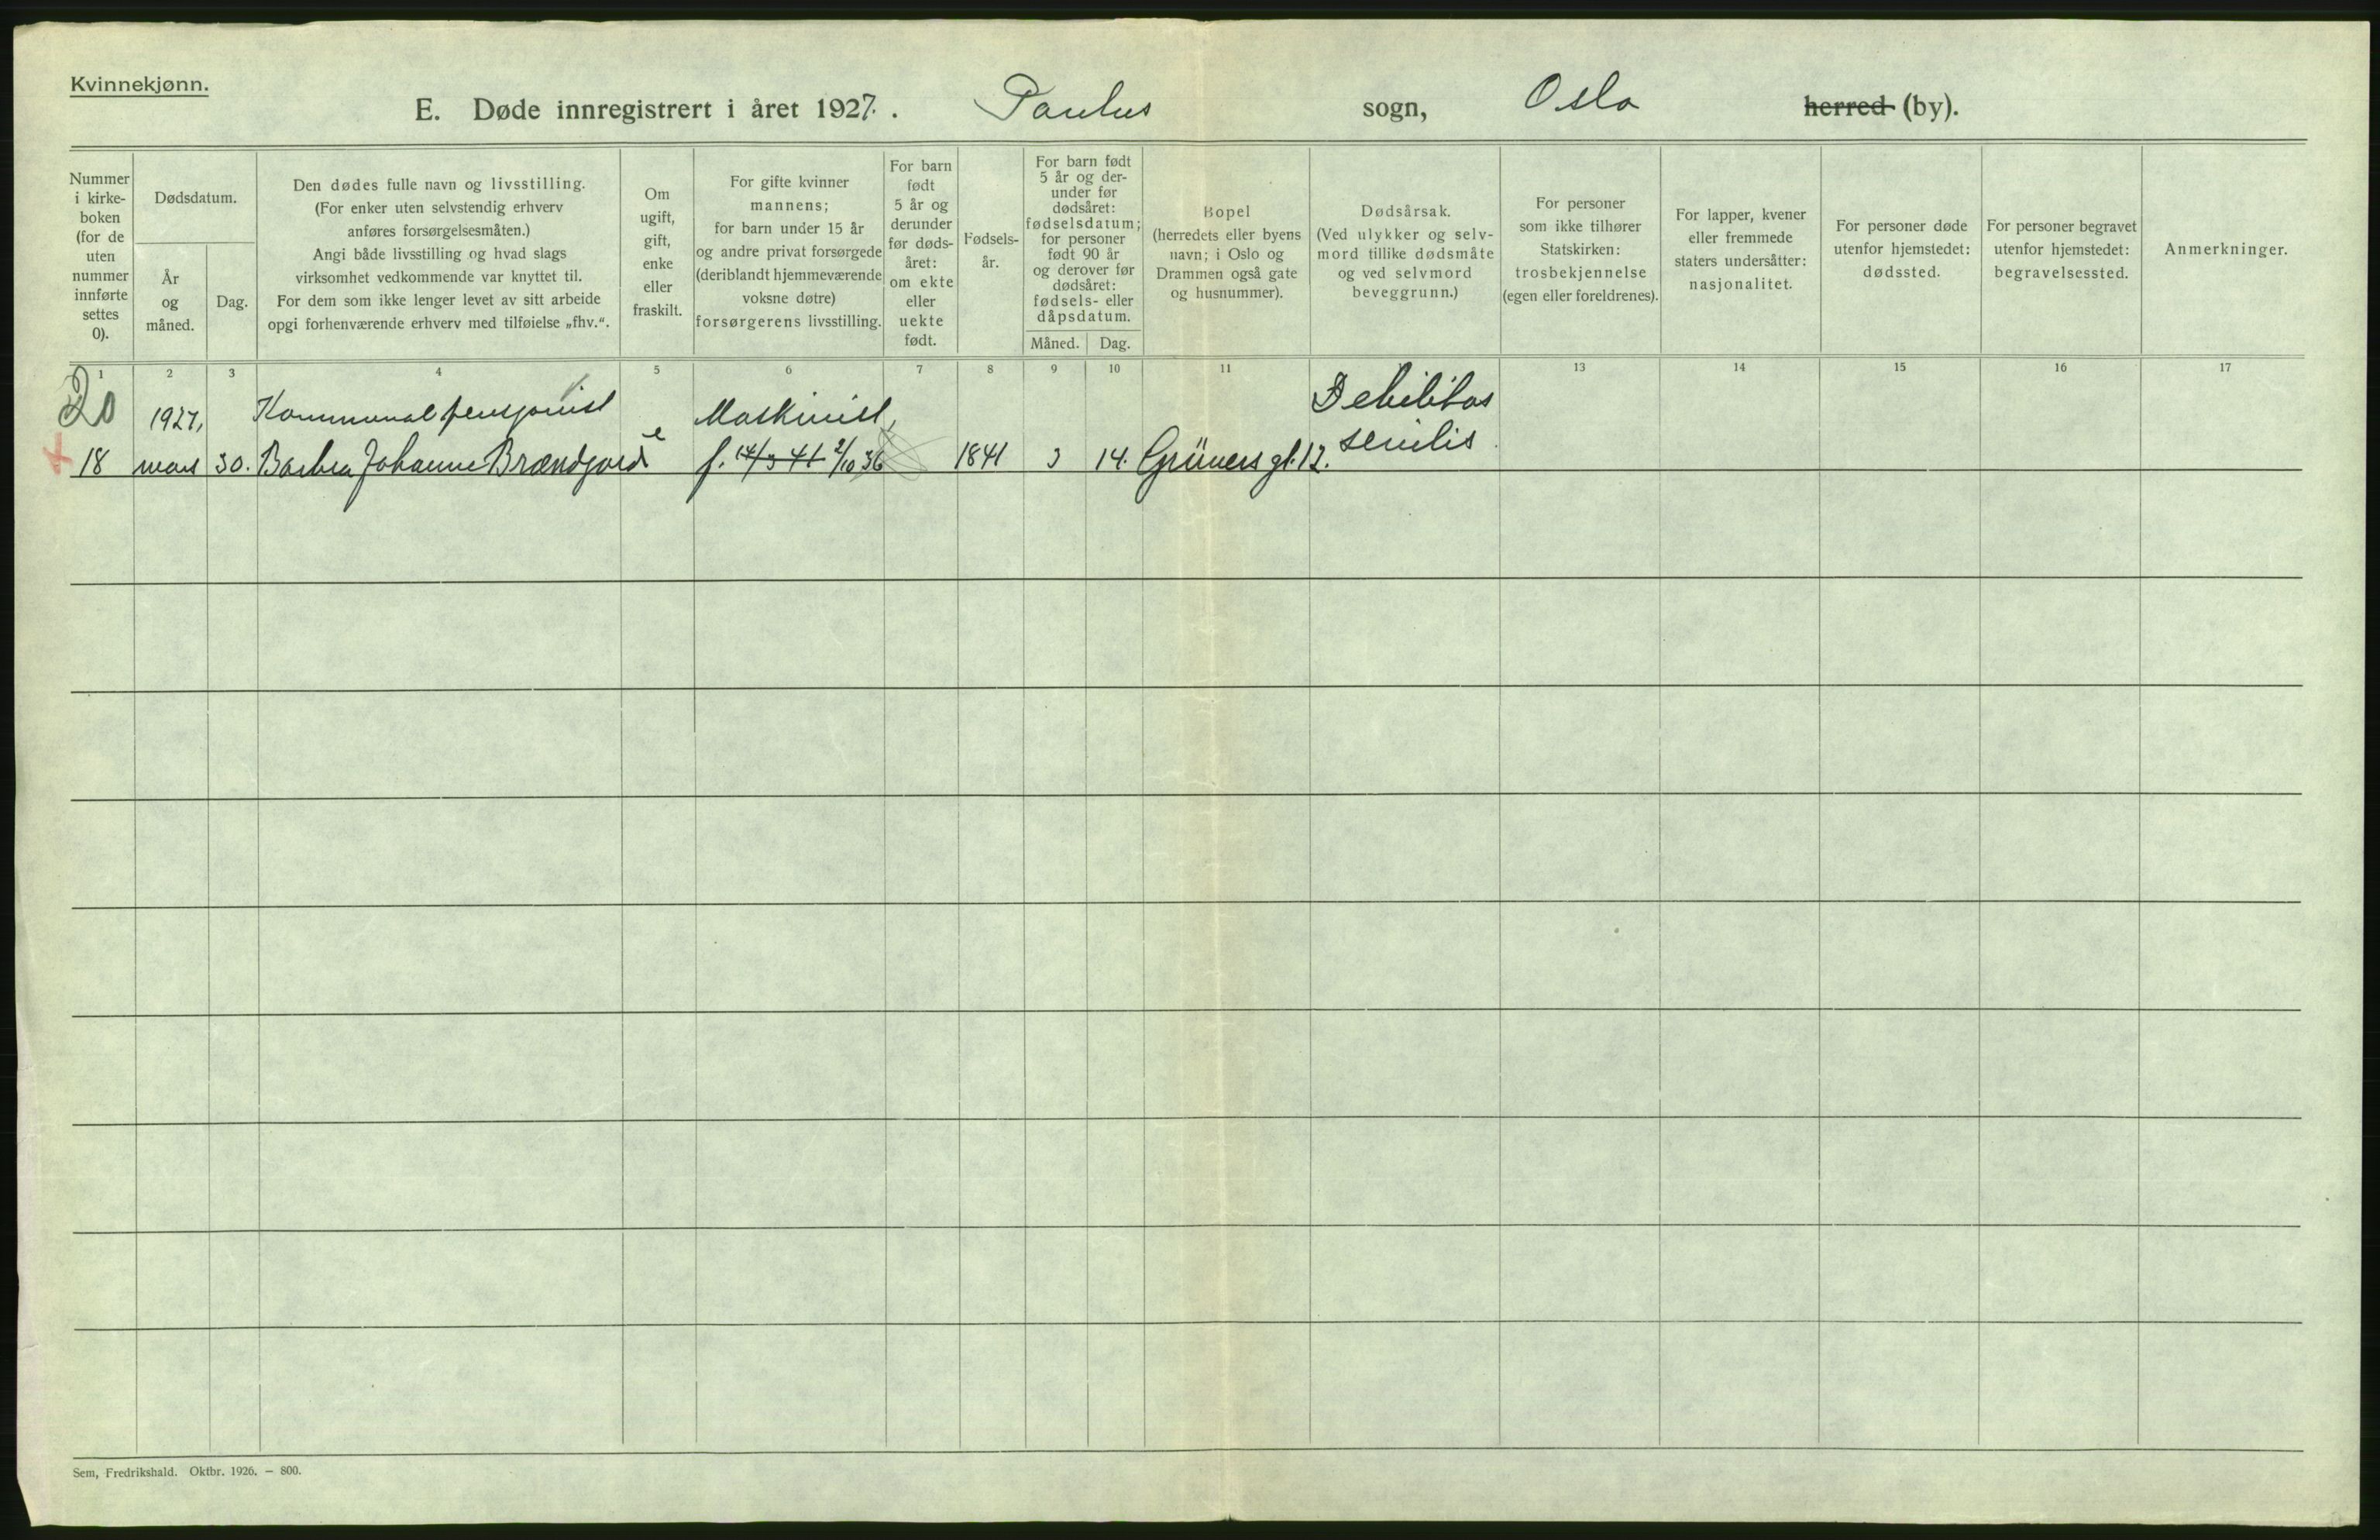 Kvinnekjønn.
E. Døde innregistrert i året 1927. . Paulus sogn, Oslo herred (by).
Nummer
i kirke-
boken
(for de
uten
nummer
innførte
settes
0).
Dødsdatum.
År
og
måned.
Dag.
Den dødes fulle navn og livsstilling.
(For enker uten selvstendig erhverv
anføres forsørgelsesmåten.)
Angi både livsstilling og hvad slags
virksomhet vedkommende var knyttet til.
For dem som ikke lenger levet av sitt arbeide
opgi forhenværende erhverv med tilføielse „fhv.“.
Om
ugift,
gift,
enke
eller
fraskilt.
For gifte kvinner
mannens;
for barn under 15 år
og andre privat forsørgede
(deriblandt hjemmeværende
voksne døtre)
forsørgerens livsstilling.
For barn
født
5 år og
derunder
før døds-
året:
om ekte
eller
uekte
født.
Fødsels-
år.
For barn født
5 år og der-
under før
dødsåret:
fødselsdatum;
for personer
født 90 år
og derover før
dødsåret:
fødsels- eller
dåpsdatum.
Måned. Dag.
Bopel
(herredets eller byens
navn; i Oslo og
Drammen også gate
og husnummer).
Dødsårsak.
(Ved ulykker og selv-
mord tillike dødsmåte
og ved selvmord
beveggrunn.)
For personer
som ikke tilhører
Statskirken:
trosbekjennelse
(egen eller foreldrenes).
For lapper, kvener
eller fremmede
staters undersåtter:
nasjonalitet.
For personer døde
utenfor hjemstedet:
dødssted.
For personer begravet
utenfor hjemstedet:
begravelsessted.
Anmerkninger.
1 2 3 4 5 6 7 8 9 10 11 13 14 15 16 17
20 1927, Kommunalpensjonist Maskinist, Debilitas
18 mars 30. Barbra Johanne Brændjord e f. 14/3 41 2/10 36 1841 3 14. Grüners gt. 12. senilis
Sem, Fredrikshald. Oktbr. 1926. — 800.